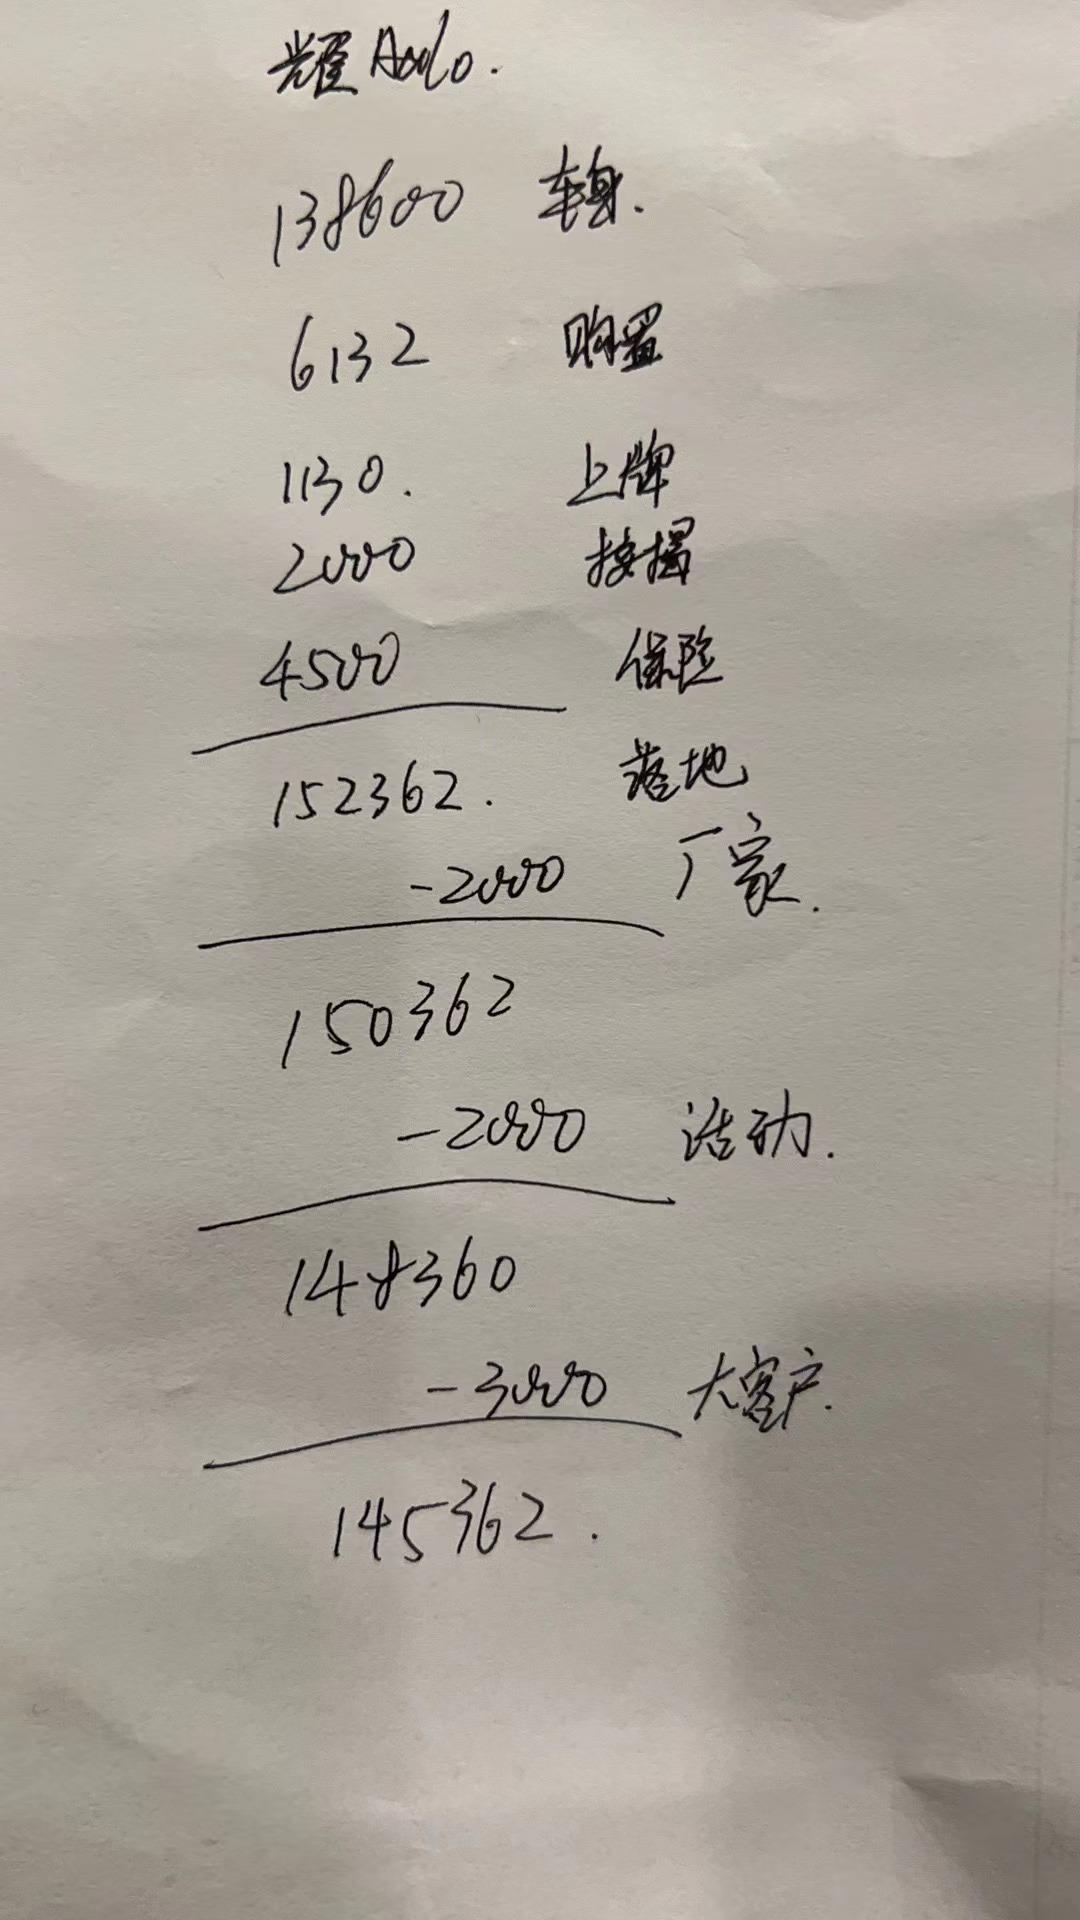 耀
138600 车身.
6132 购置
1130. 上牌
2000 按揭
4500 保险
152362. 落地
-2000 厂家.
150362
-2000 活动.
148360
-3000 大客户.
145362.